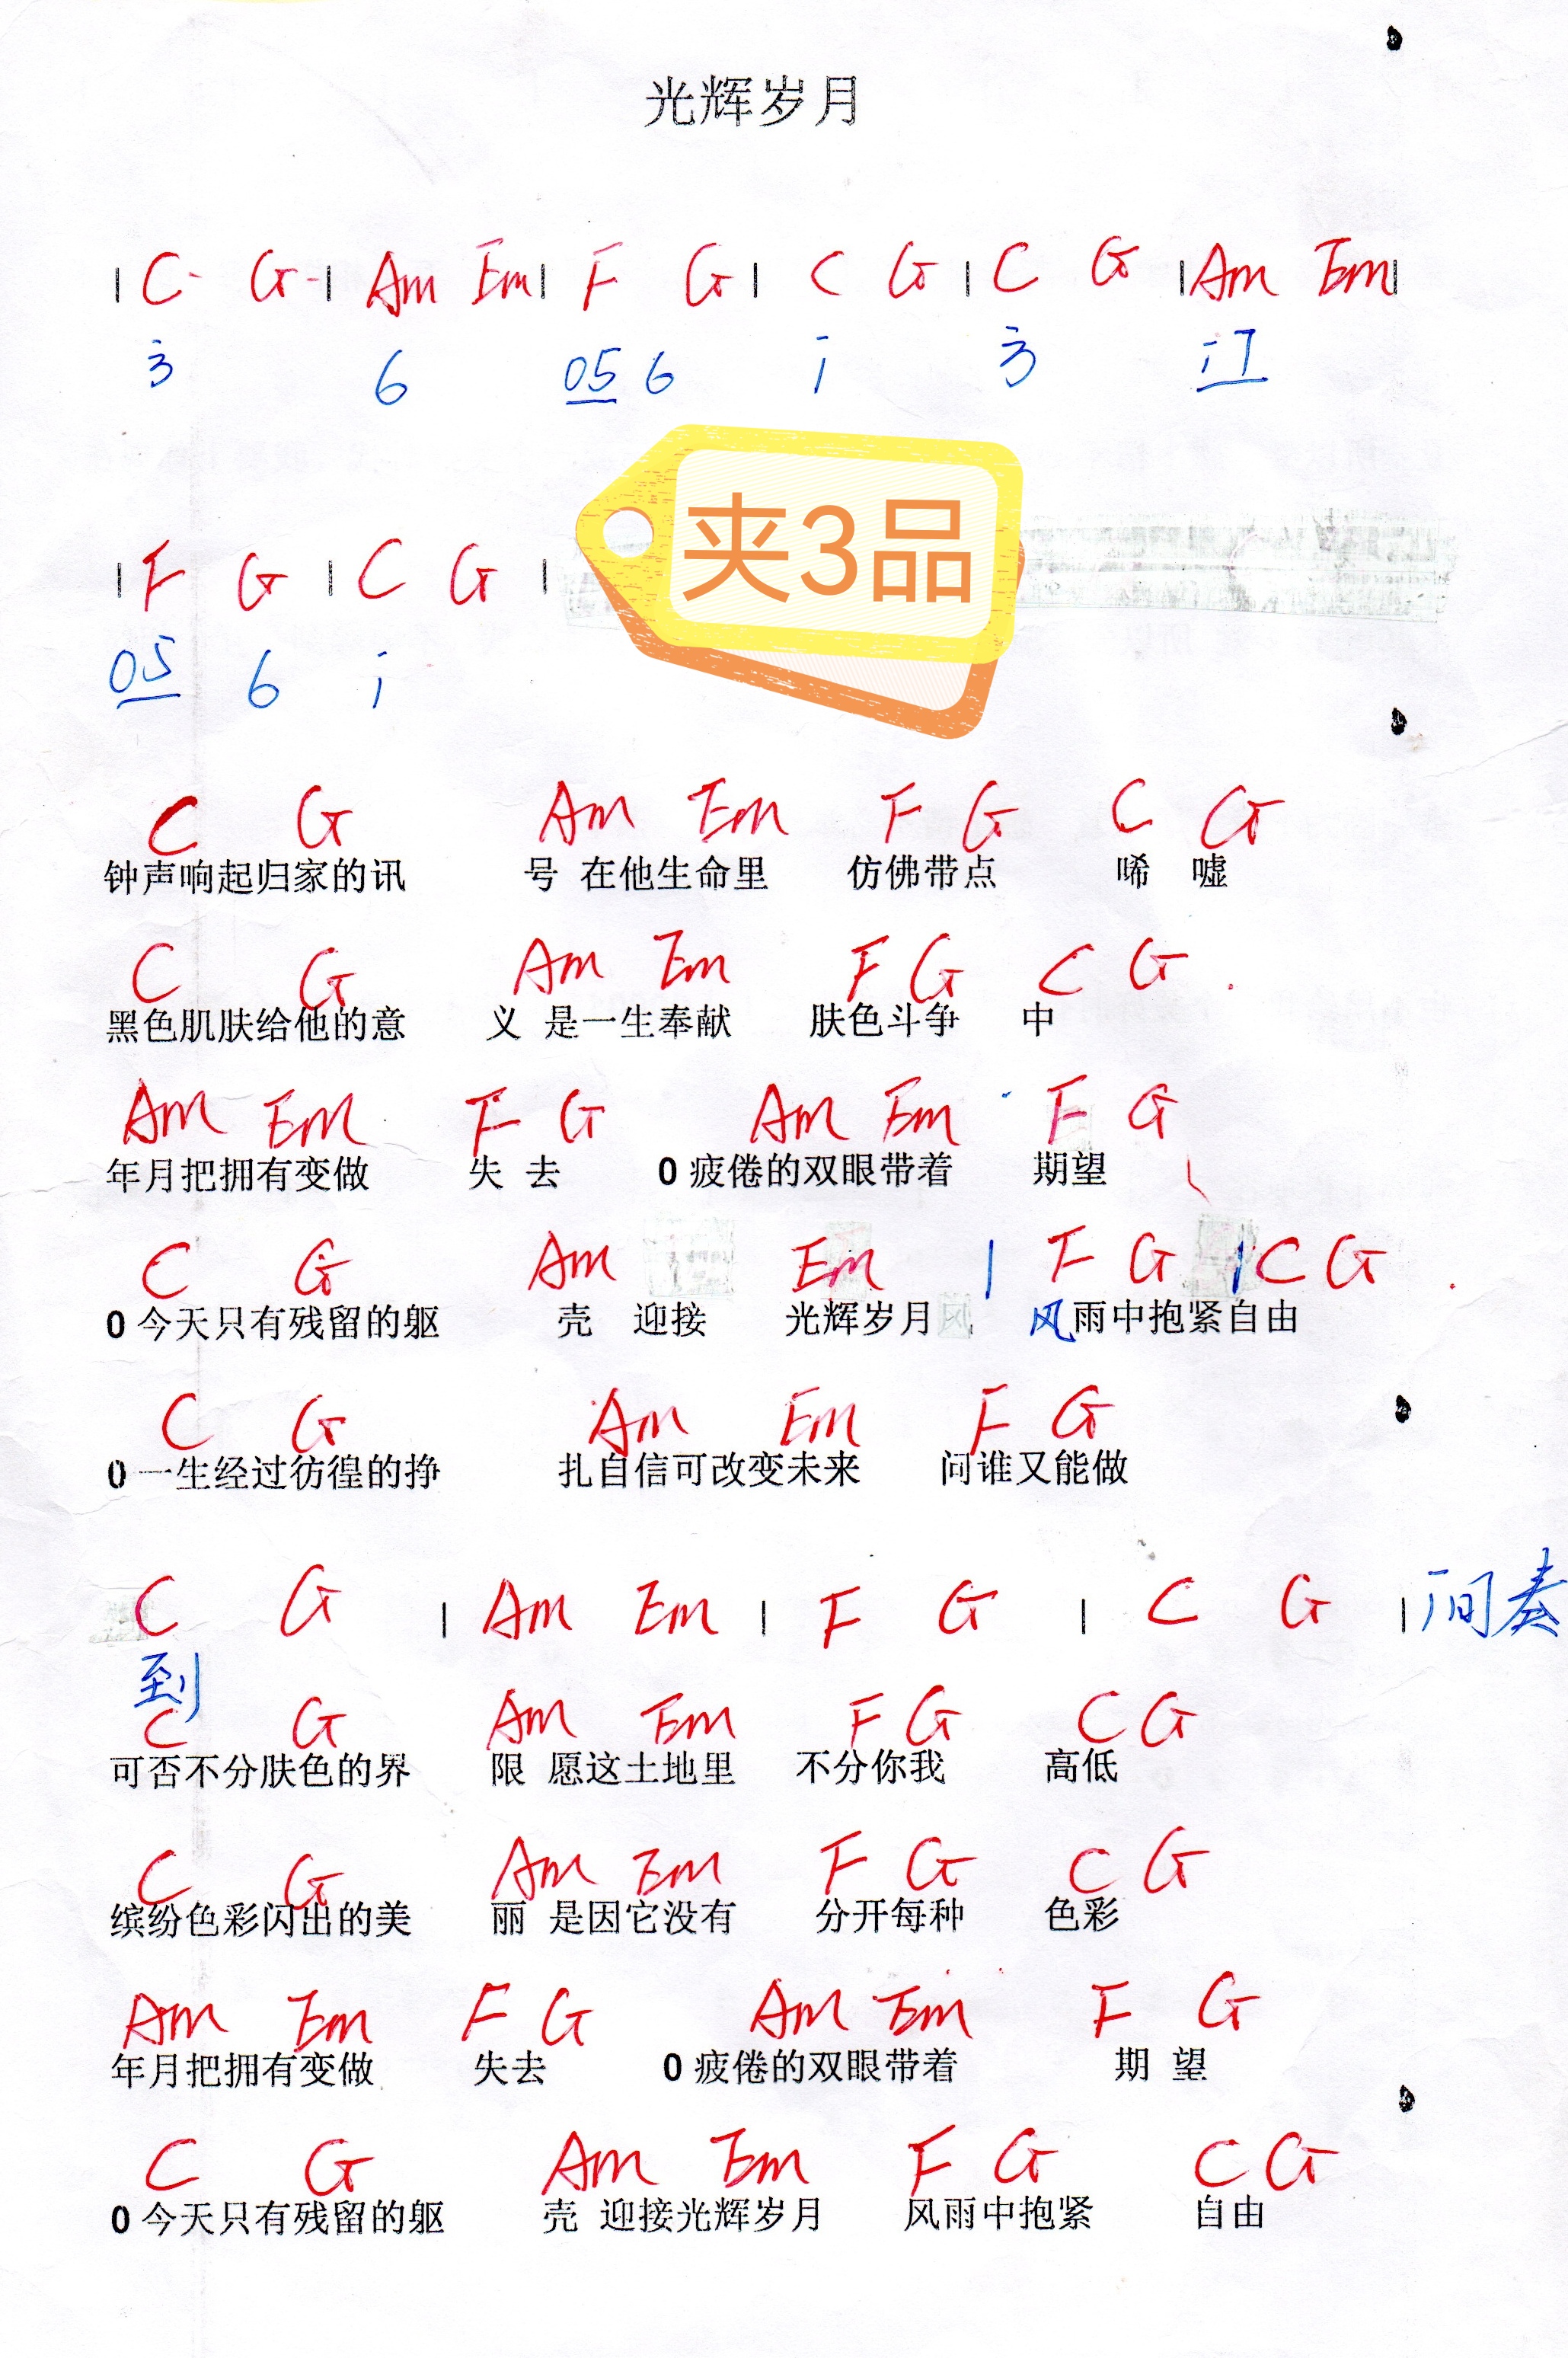 光辉岁月
| C - G - | Am Em | F G | C G | C G | Am Em |
3̇ 6 05 6 i 3̇ i7
夹3品
| F G | C G |
05 6 i
C G Am Em F G C G
钟声响起归家的讯 号 在他生命里 仿佛带点 唏 嘘
C G Am Em F G C G
黑色肌肤给他的意 义 是一生奉献 肤色斗争 中
Am Em F G Am Em F G
年月把拥有变做 失 去 0 疲倦的双眼带着 期望
C G Am Em | F G | C G
0 今天只有残留的躯 壳 迎接 光辉岁月 风雨中抱紧自由
C G Am Em F G
0 一生经过彷徨的挣 扎自信可改变未来 问谁又能做
C G | Am Em | F G | C G | 间奏
到
C G Am Em F G C G
可否不分肤色的界 限 愿这土地里 不分你我 高低
C G Am Em F G C G
缤纷色彩闪出的美 丽 是因它没有 分开每种 色彩
Am Em F G Am Em F G
年月把拥有变做 失去 0 疲倦的双眼带着 期 望
C G Am Em F G C G
0 今天只有残留的躯 壳 迎接光辉岁月 风雨中抱紧 自由